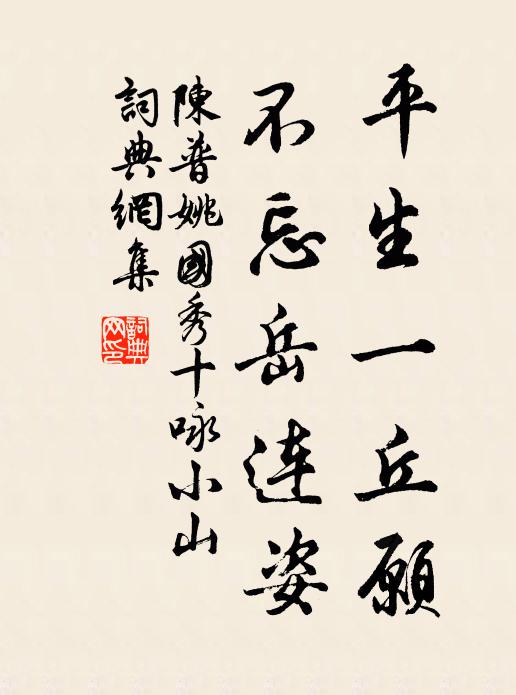 平生一丘願
不忘岳連姿
陳普姚國秀十咏小山
詞典網集
詞典网印